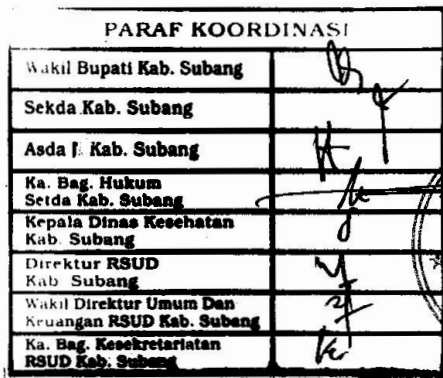 PARAF KOORDINASI
Wakil Bupati Kab. Subang
Sekda Kab. Subang
Asda I Kab. Subang
Ka. Bag. Hukum
Setda Kab. Subang
Kepala Dinas Kesehatan
Kab. Subang
Direktur RSUD
Kab Subang
Wakil Direktur Umum Dan
Keuangan RSUD Kab. Subang
Ka. Bag. Kesekretariatan
RSUD Kab. Subang